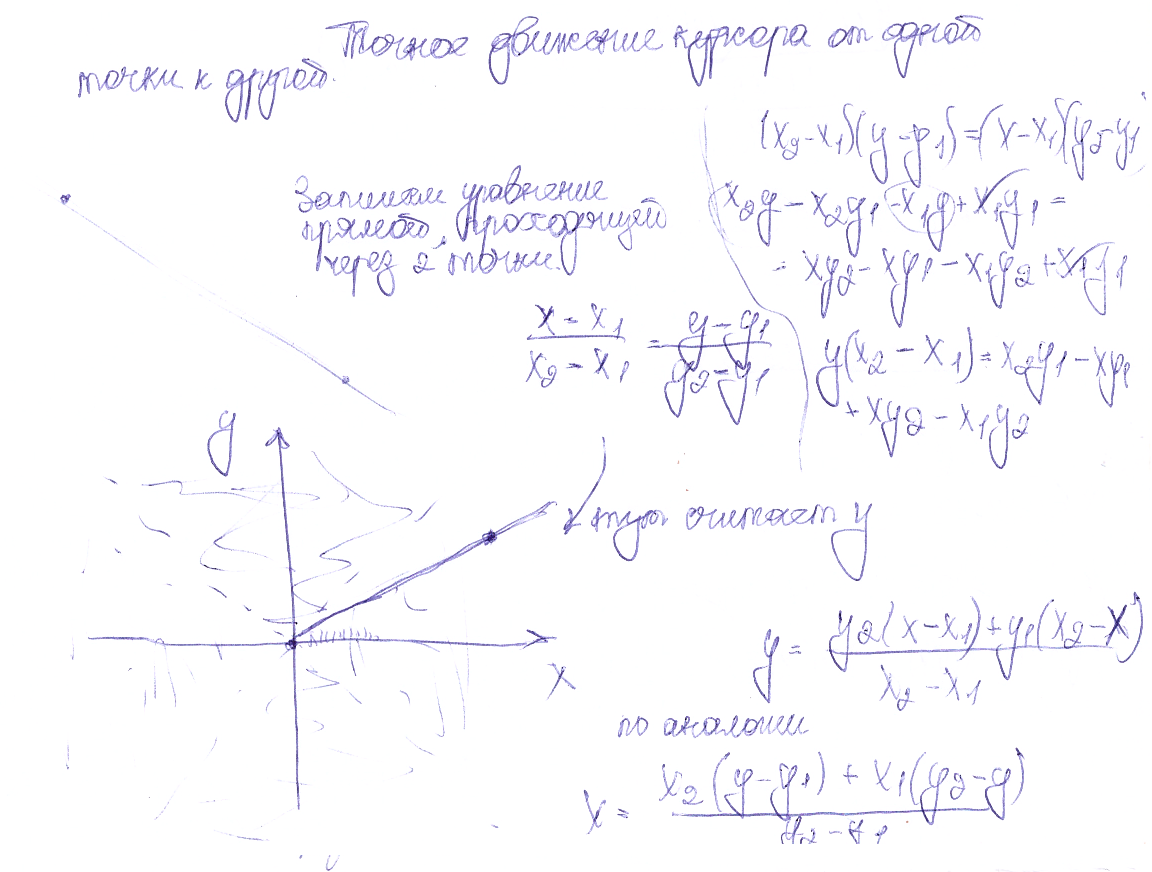 Точное движение курсора от одной
точки к другой.
Запишем уравнение
прямой, проходящей
через 2 точки.
(x - x₁)/(x₂ - x₁) = (y - y₁)/(y₂ - y₁)
(x₂-x₁)(y-y₁)=(x-x₁)(y₂-y₁
x₂y - x₂y₁ - x₁y + x₁y₁ =
= xy₂ - xy₁ - x₁y₂ + x₁y₁
y(x₂ - x₁) = x₂y₁ - xy₁
+ xy₂ - x₁y₂
y
x
тут считает y
y = (y₂(x-x₁)+y₁(x₂-x))/(x₂-x₁)
по аналогии
x = (x₂(y-y₁) + x₁(y₂-y))/(y₂-y₁)